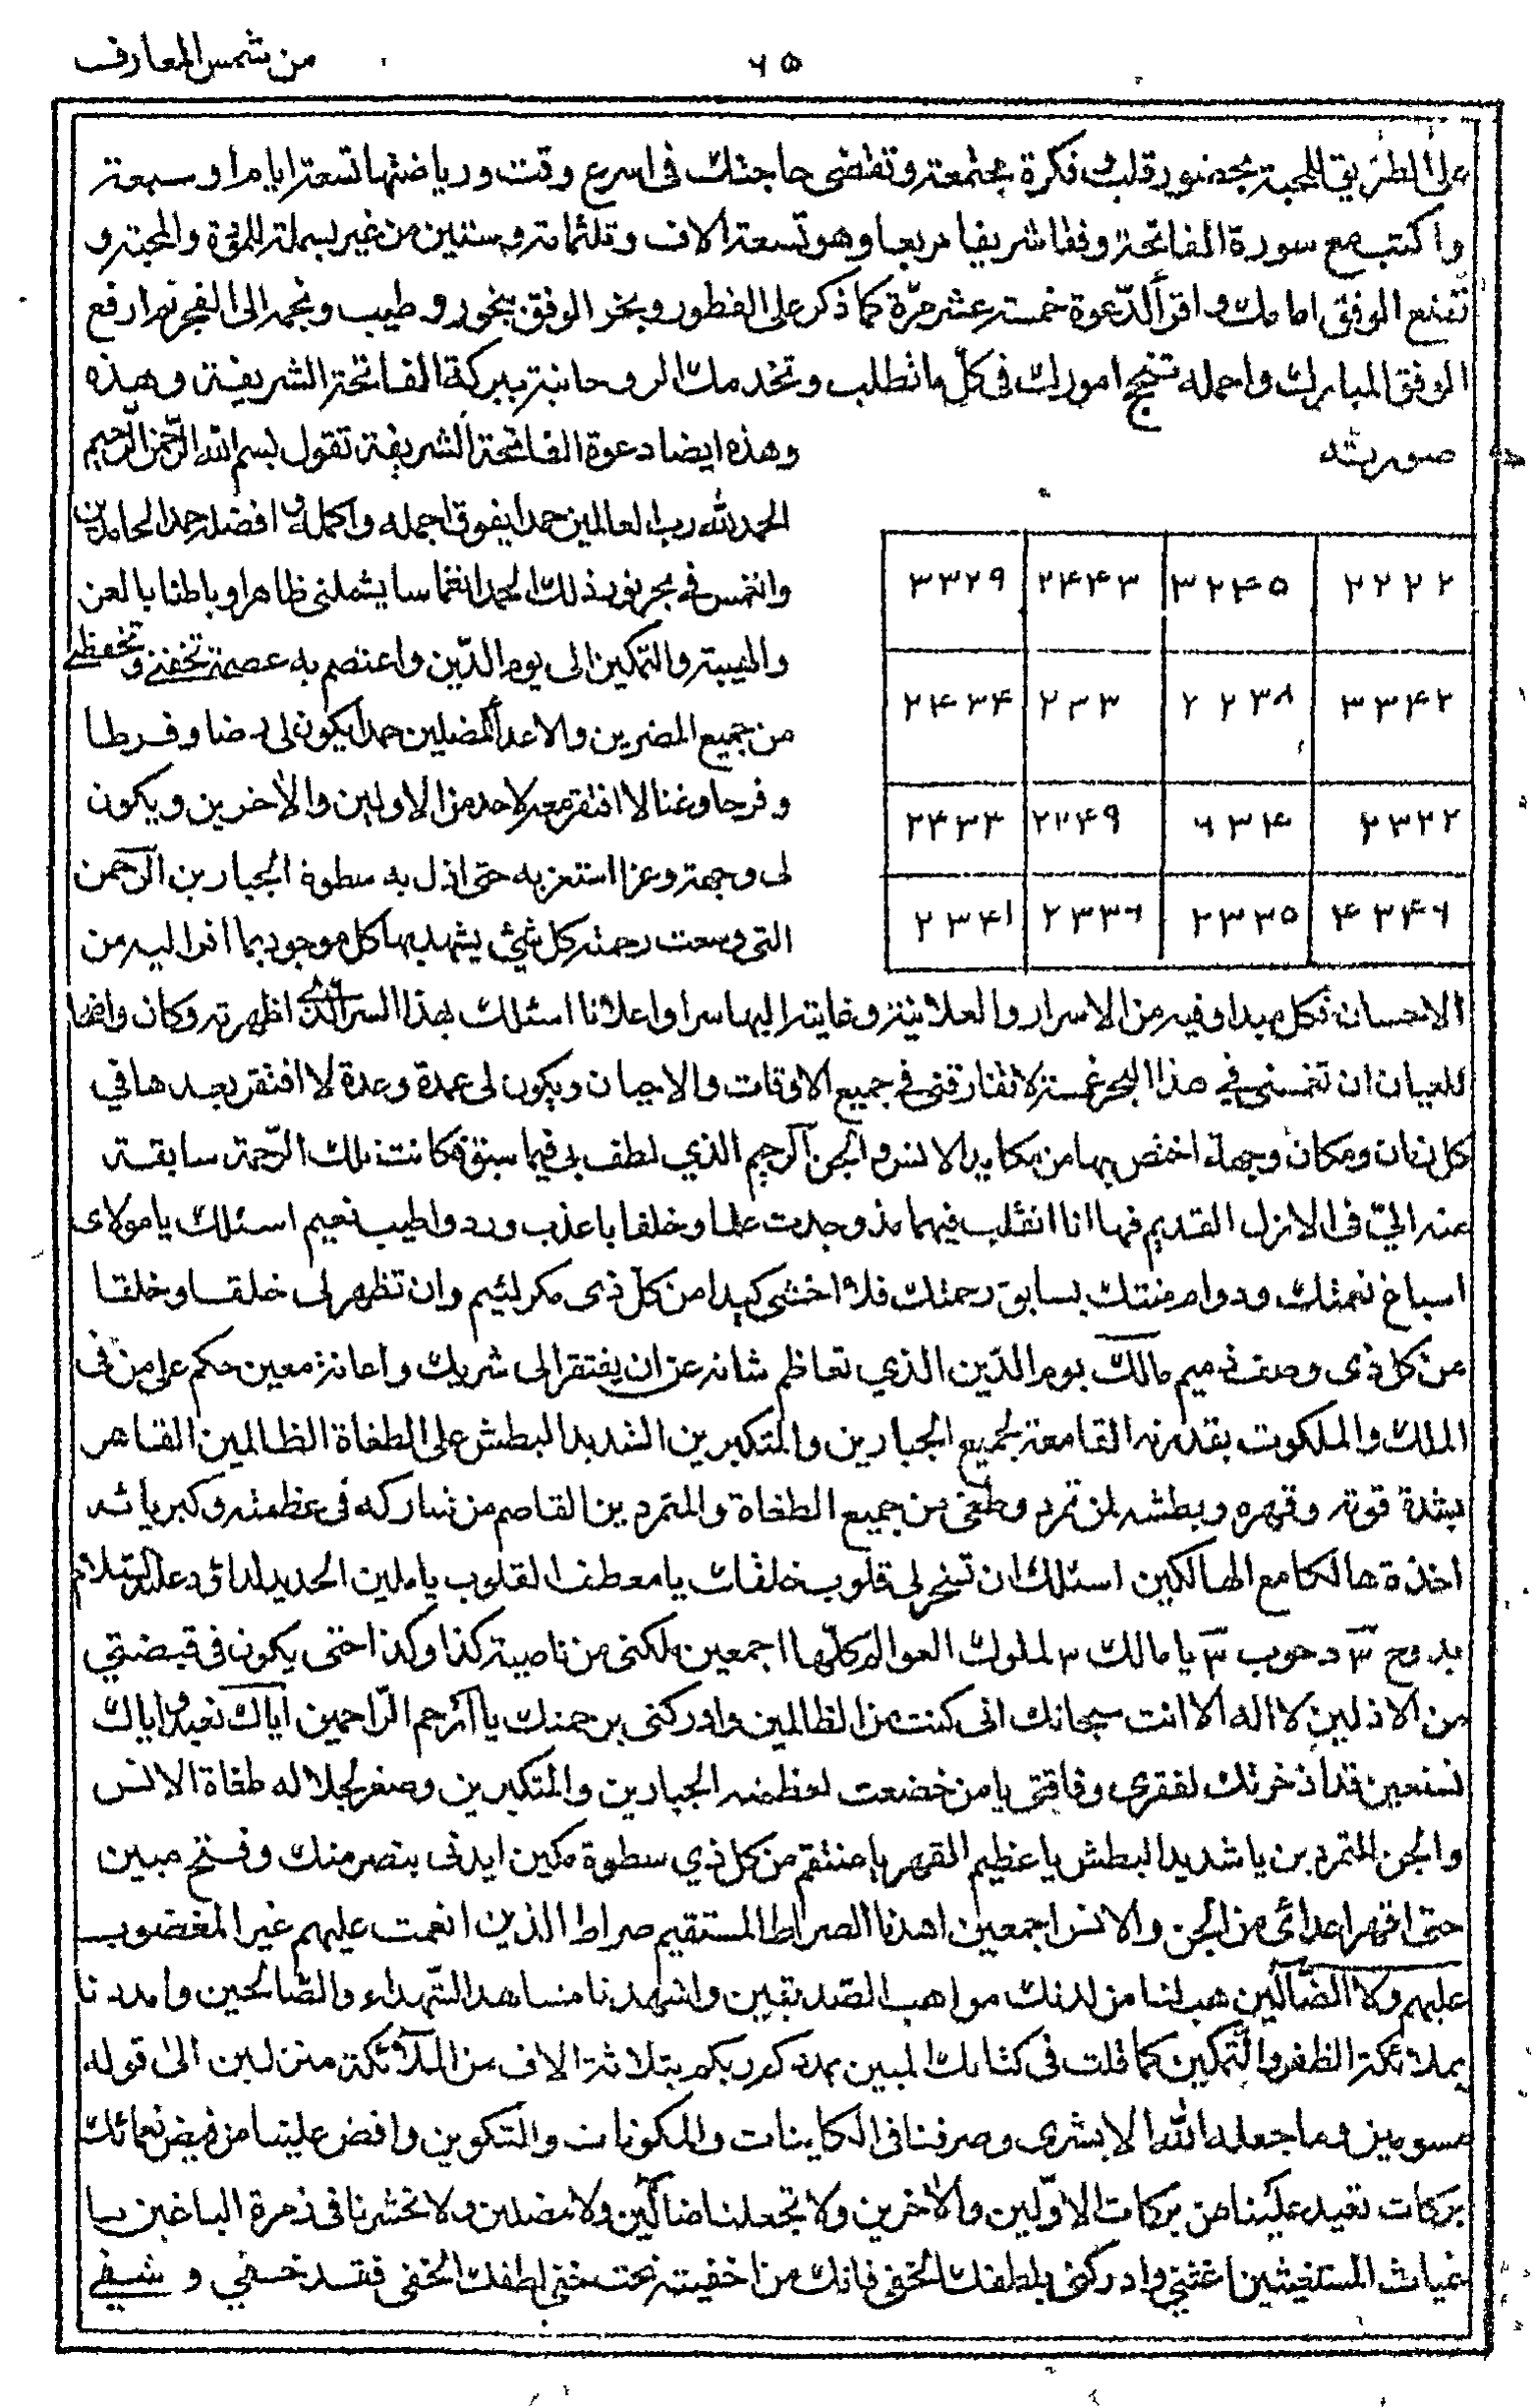 من شمس المعارف
٦٥
على الطريق للمحبة بحضور قلب فكرة مجتمعة وتقضى حاجتك فى اسرع وقت ورياضتها تسعة ايام او سبعة
واكتب مع سورة الفاتحة وفقا شريفا مربعا وهو تسعة الاف وثلثمائة وستين من غير بسملة للمودة والمحبة و
تضع الوفق امامك واقرأ الدّعوة خمسة عشر مرّة كما ذكر على الفطور وبخر الوفق ببخور و طيب ونجمه الى الفجر ثم ارفع
الوفق المبارك واحمله تنجح امورك فى كلّ ما تطلب وتخدمك الروحانية ببركة الفاتحة الشريفة وهذه
صورته
وهذه ايضا دعوة الفاتحة الشريفة تقول بسم الله الرّحمن الرّحيم
الحمد لله رب العالمين حمدا يفوق اجمله واكمله و افضله حمد الحامدين
وانغمس فى بحر نور ذلك الحمد انغماسا يشملنى ظاهرا وباطنا بالعز
والهيبة والتمكين الى يوم الدّين واعتصم به عصمة تحفنى وتحفظنى
من جميع المضرين والاعداء المضلين حمدا يكون لى رضا وفرطا
وفرحا وغنا لا افتقر معه لاحد من الاولين والاخرين ويكون
لى وجهة وعزا استعز به حتى اذل به سطوة الجبارين الرّحمن
التى وسعت رحمته كل شئ يشهد بها كل موجود بما اقرا ليه من
٢٢٢٢ ٣٢٤٥ ٢٤٤٣ ٣٣٢٩
٣٣٤٢ ٢٢٣٨ ٢٣٣ ٢٤٣٤
٢٣٢٢ ٦٣٤ ٢٣٤٩ ٢٤٣٣
٤٣٤٦ ٢٣٣٥ ٢٣٣٦ ٢٣٤١
الاحسان فكل مبدا وفيه من الاسرار والعلانية وغايته اليها سرا واعلانا اسئلك بهذا السر الذى اظهرته وكان واضحا
للعيان ان تغمسنى فى هذا البحر غمسة لا تفارقنى فى جميع الاوقات والاحيان ويكون لى عمدة وعدة لا افتقر بعدها في
كل زمان ومكان وجهة اختص بها من مكايد الانس والجن الرّحيم الذي لطف بى فيما سبق فكانت تلك الرّحمة سابقة
منه اليّ فى الازل القديم فها انا اتقلب فيها مذ وجدت علما وخلقا باعذب ورد واطيب نعيم اسئلك يا مولاى
اسباغ نعمتك ودوام منتك بسابق رحمتك فلا اخشى كيدا من كل ذى مكر لئيم وان تظهر لى خلقا وخلقا
من كل ذى وصف ذميم مالك يوم الدّين الذي تعاظم شانه عن ان يفتقر الى شريك واعانة معين حكم على من فى
الملك والملكوت بقدرته القامعة لجميع الجبارين والمتكبرين الشديد البطش على الطغاة الظالمين القاهر
بشدة قوته وقهره وبطشه لمن تمرد وطغى من جميع الطغاة والمتمردين القاصم من شاركه فى عظمته وكبريائه
اخذة هالكا مع الهالكين اسئلك ان تسخر لى قلوب خلقك يا معطف القلوب يا ملين الحديد لداؤد عليه السّلام
بدوح ٣ دحوب ٣ يا مالك ٣ لملوك العوالم كلّها اجمعين ملكنى من ناصية كذا وكذا حتى يكون فى قبضتي
من الاذلين لا اله الا انت سبحانك انى كنت من الظالمين وادركنى برحمتك يا ارحم الرّاحمين اياك نعبد واياك
نستعين قد اذخرتك لفقرى وفاقتى يا من خضعت لعظمته الجبارين والمتكبرين وصغر لجلاله طغاة الانس
والجن المتمردين يا شديد البطش يا عظيم القهر يا منتقم من كل ذي سطوة مكين ايدنى بنصر منك وفتح مبين
حتى اقهر اعدائى من الجن والانس اجمعين اهدنا الصراط المستقيم صراط الذين انعمت عليهم غير المغضوب
عليهم ولا الضّالّين هب لنا من لدنك مواهب الصّديقين واشهدنا مشاهد الشّهداء والصّالحين وامددنا
بملائكة الظفر والتّمكين كما قلت فى كتابك المبين يمدكم ربكم بثلاثة الاف من الملائكة منزلين الى قوله
مسومين وما جعله الله الا بشرى وصرفنا فى الكاينات والمكونات والتكوين وافض علينا من فيض نعمائك
بركات تعيد علينا من بركات الاوّلين والاخرين ولا تجعلنا ضالّين ولا مضلين ولا تحشرنا فى زمرة الباغين يا
غياث المستغيثين اغثنى وادركنى بلطفك الخفى فانك من اخفيته تحت خفى لطفك الخفى فقد خفى و شفى